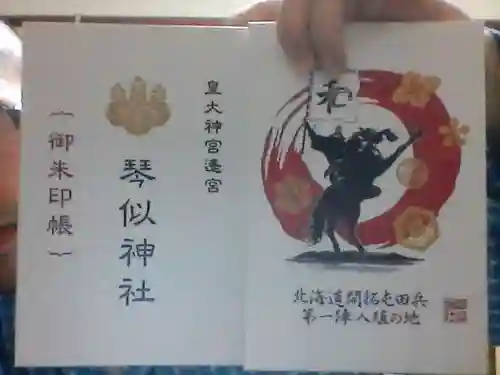 皇大神宮遙宮
琴似神社
（御朱印帳）
和
北海道開拓屯田兵
第一陣入植の地